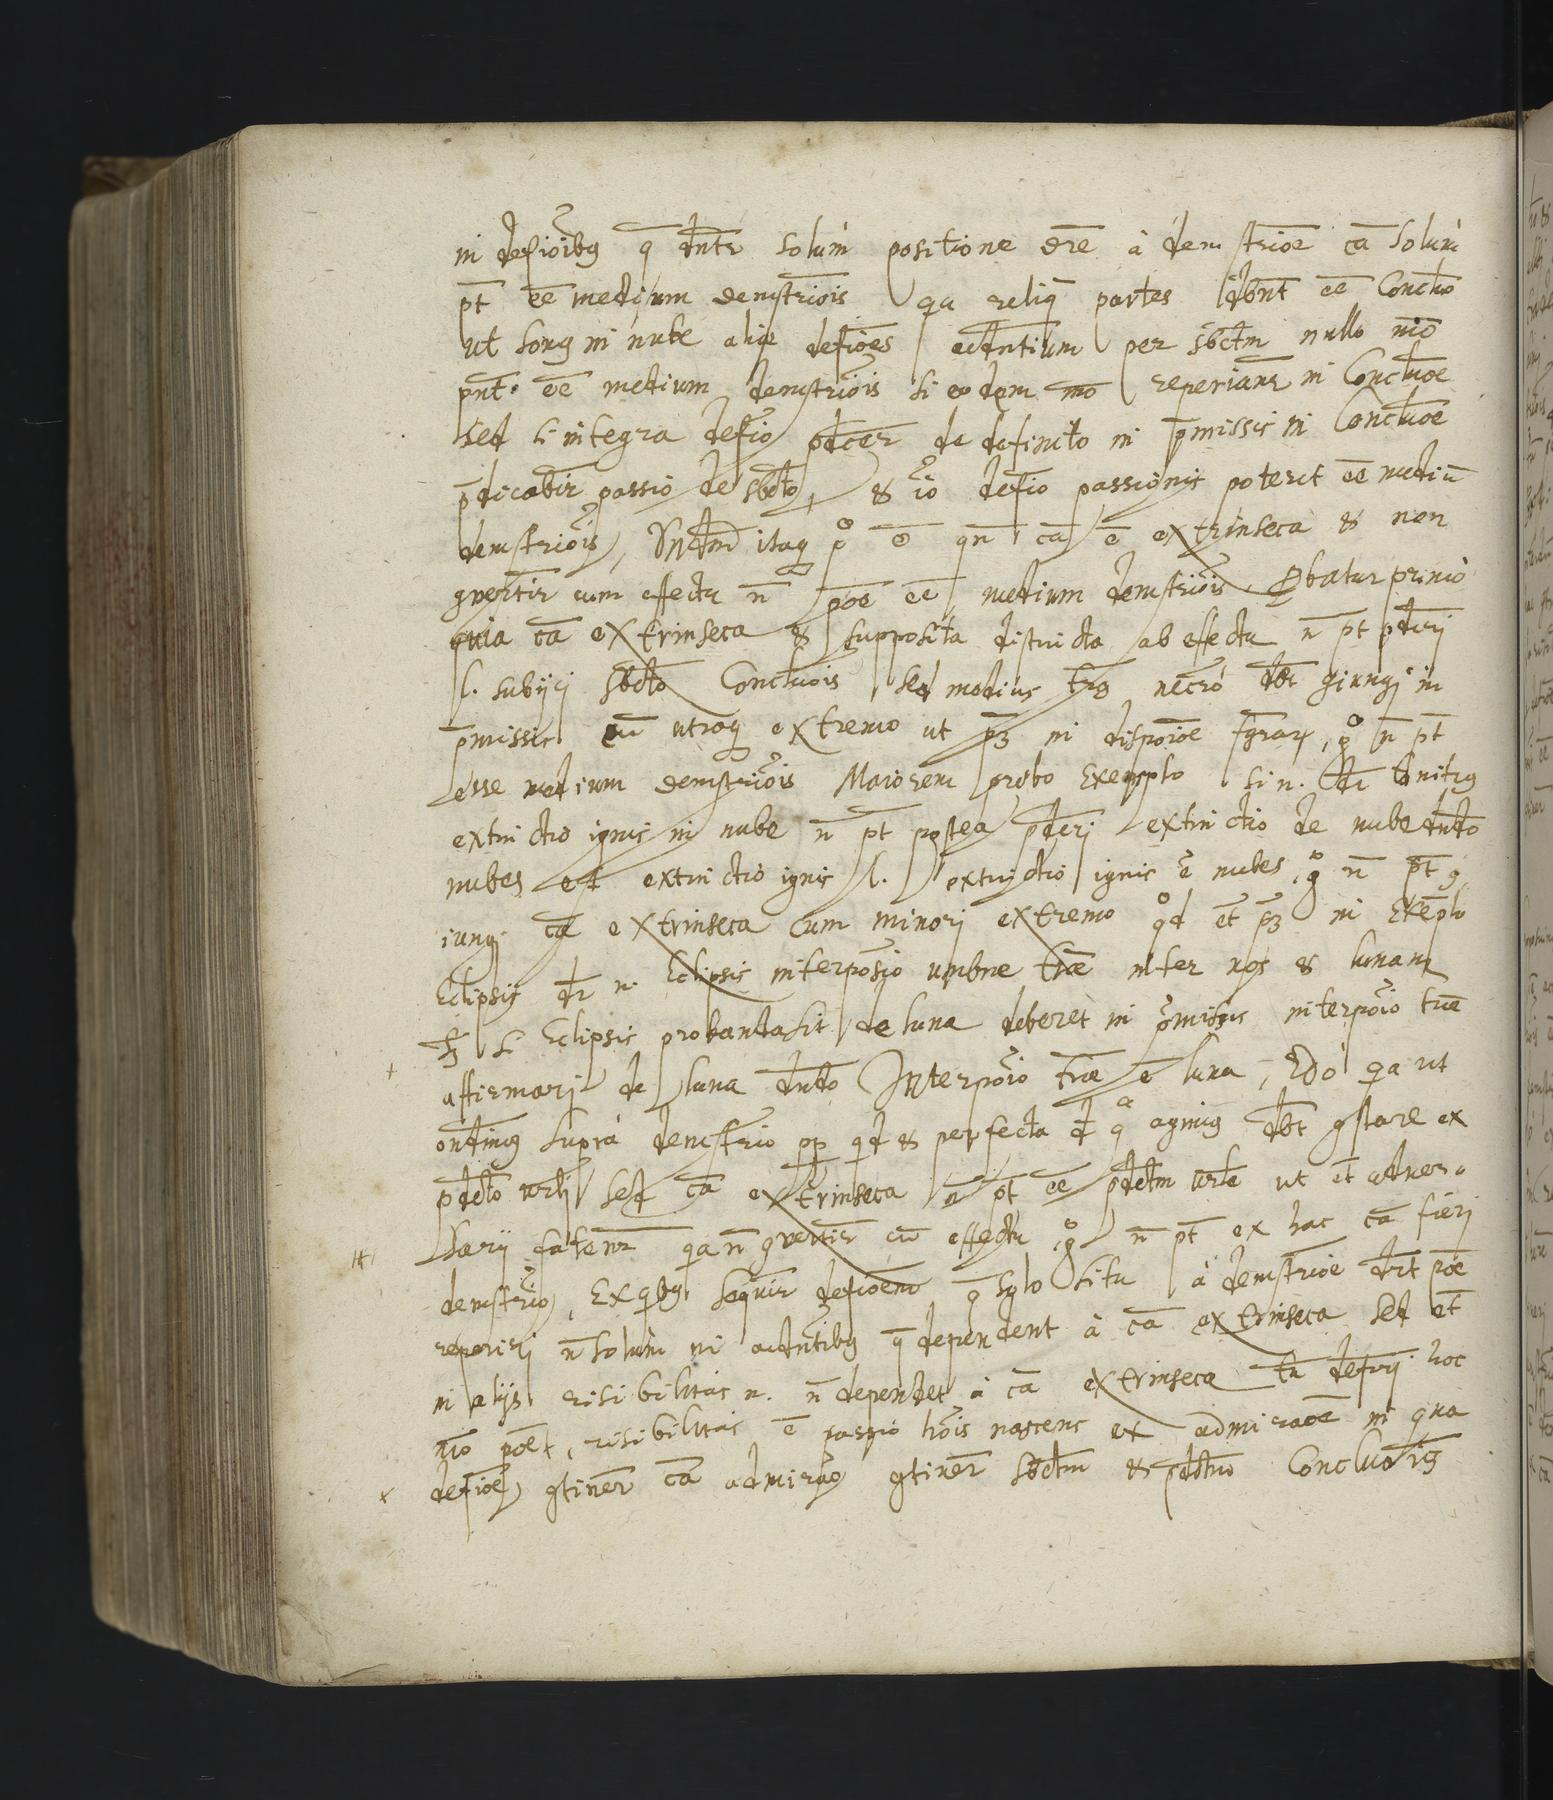 in defioibg q̄ dn̄tr solum positione dr̄e à demstrioe cā solum
pt̄ ēe medium demstriois qa reliq̄ partes dbn̄t ēe Concluo
ut song in nube aliȩ defiōes acdn̄tium per sbctm̄ nullo mō
pn̄t. ēe medium demstriois si eodem mō reperianr̄ in Concluoē
sed si integra defio pdcer̄ de definito in p̄missis in Concluoē
p̄dicabir̄ passio de sbcto, & io defio passionis poterit ēe mediū
demstriois, itaq p ē qn̄ cā ē extrinseca & non
gvertir̄ cum effectu n̄ pōe ēe medium demstriois Pbatur primò
quia cā extrinseca & supposita distincta ab effectu n̄ pt pdcrj
l. subijcj sbcto Concluois sed medius tr̄g necrò dēt giungj in
p̄missis cū utroq extremo ut pz in dispoiōe fgrar, g n̄ pt̄
esse medium demstriois Maiorem probo Exemplo si n. dr̄ tonitrg
extinctio ignis in nube n̄ pt postea pdcrj extinctio de nube dndo
nubes est extinctio ignis l. extinctio ignis ē nubes, g n̄ pt̄ g
iungj cā extrinseca cum minorj extremo qd ēt pz in Exēplo
Eclipsis dr̄ n. Eclipsis interposio umbrȩ trȩ inter nos & lunam
si Eclipsis probanda sit de luna deberet in p̄missis interpoio trȩ
affirmarj de luna dndo Interpoio trȩ ē luna, 2do qa ut
supra demstrio pp qd & perfecta d q agimg dbt gstare ex
pdcto urlj sed cā extrinseca n̄ pt̄ ēe pdctm urle ut ēt adver-
sarij fatenr̄ qa n̄ gvertir̄ cū effectu g n̄ pt̄ ex hac cā fierj
demstrio, Ex qibg seqir̄ defioēm q̄ solo situ à demstrioe drt̄ pōe
reperirj n̄ solum in acdn̄tibg q̄ dependent à cā extrinseca sed ēt
in alijs risibilitas n. n̄ dependet à cā extrinseca tn̄ hoc
mō pōet, risibilitas ē passio hoīs nascens ex admiraoē in qua
defioē gtiner̄ cā admirao gtiner̄ sbctm & pdctm Concluoīs